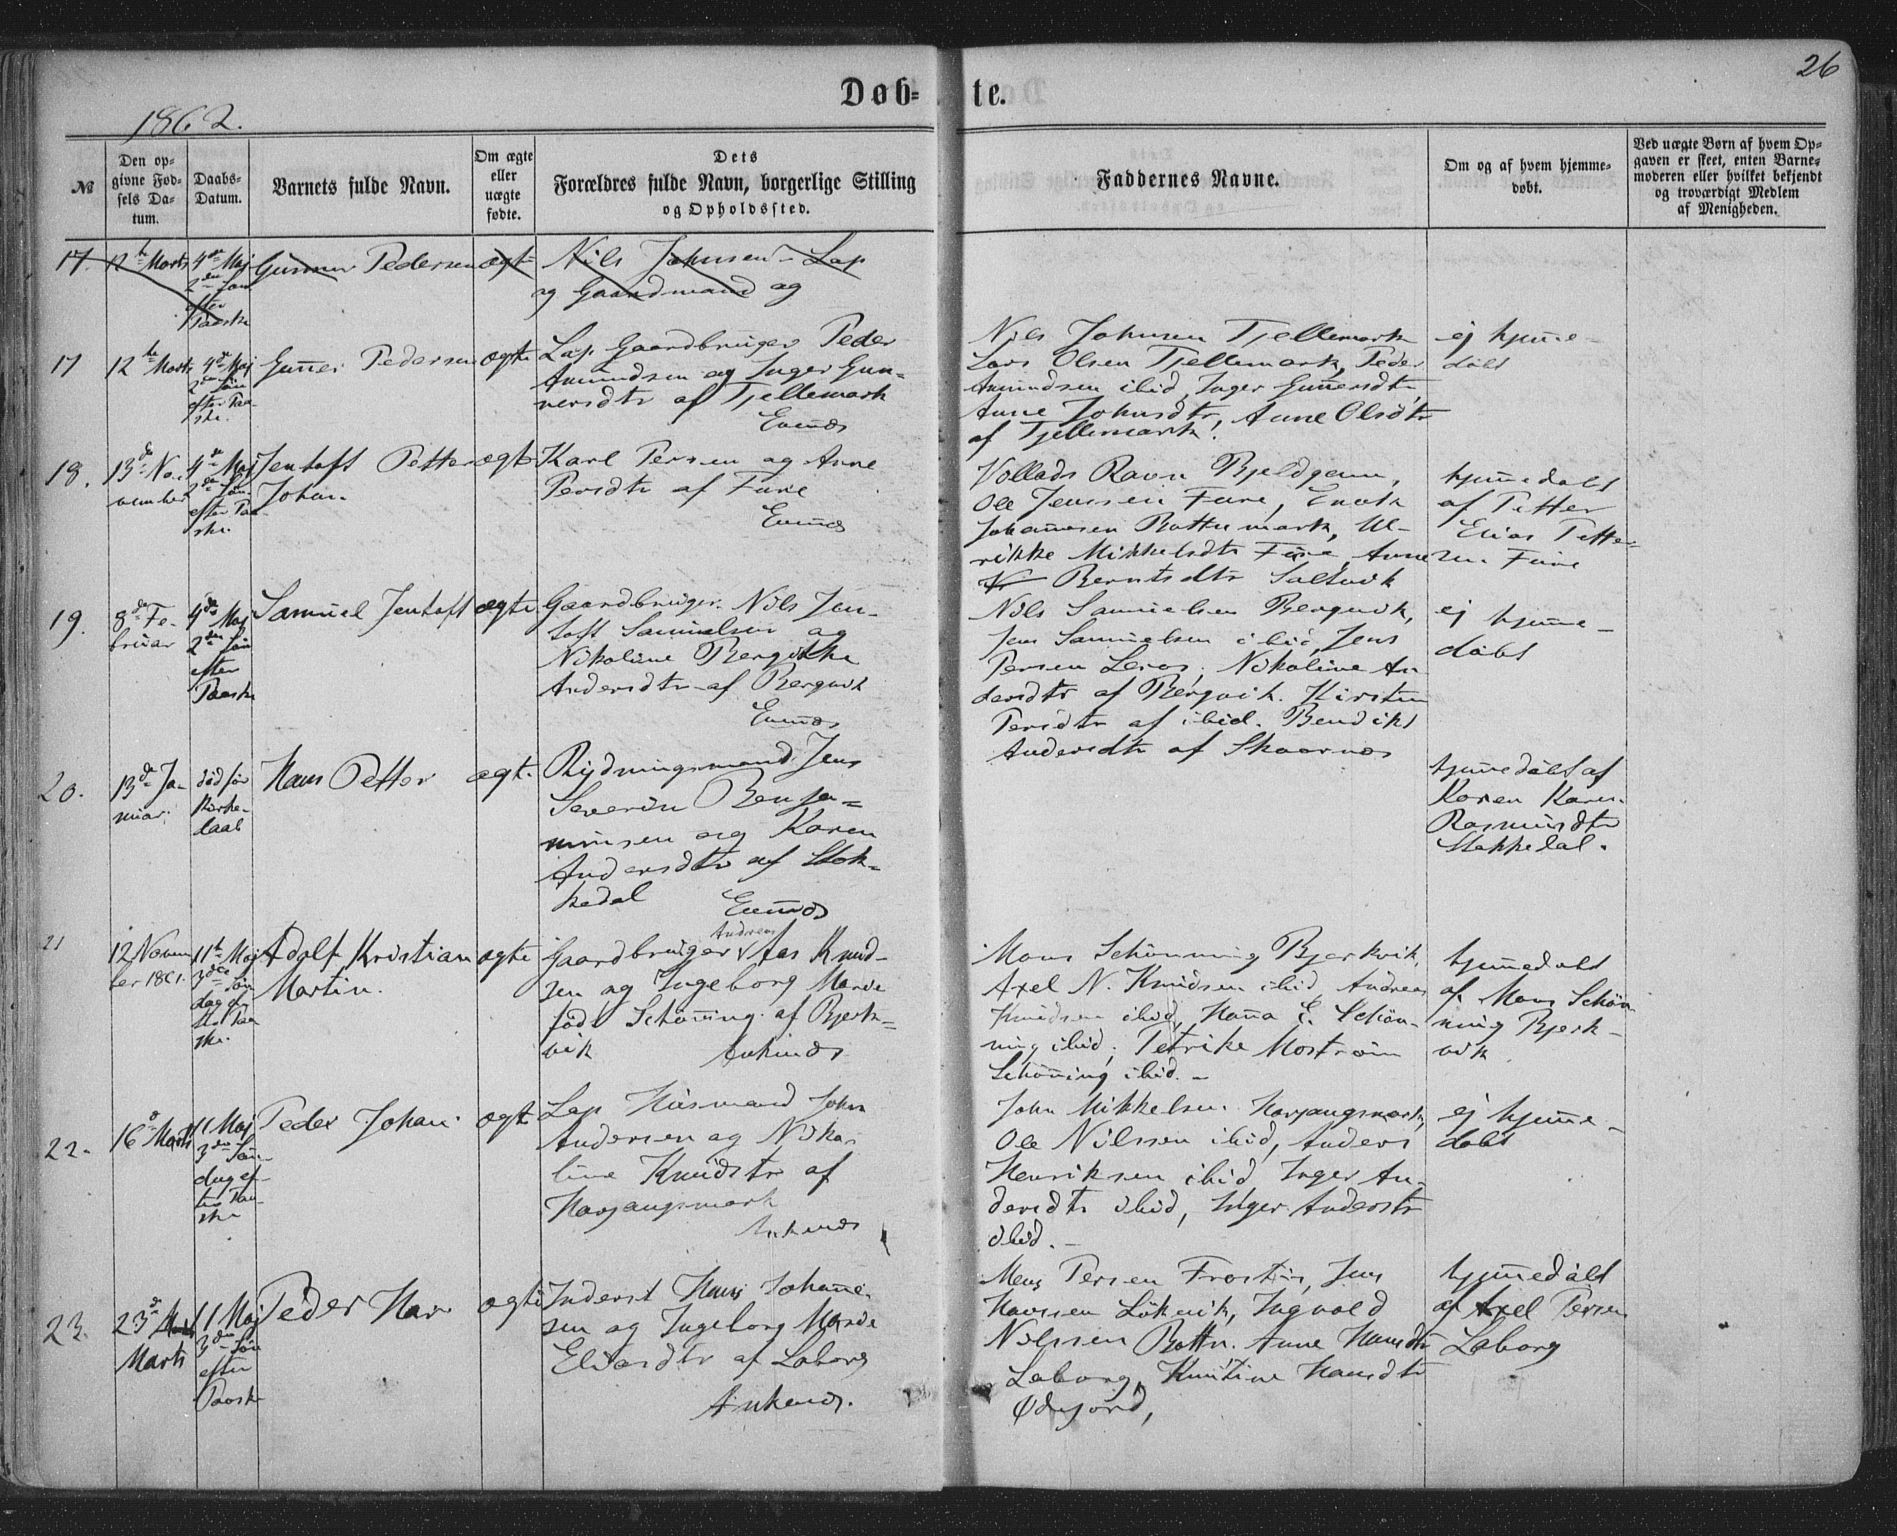 26
Døb- te.
1862.
№
Den op-
givne Fød-
sels Da-
tum.
Daabs-
Datum.
Barnets fulde Navn.
Om ægte
eller
uægte
fødte.
Dets
Forældres fulde Navn, borgerlige Stilling
og Opholdssted.
Faddernes Navne.
Om og af hvem hjemme-
døbt.
Ved uægte Børn af hvem Op-
gaven er skeet, enten Barne-
moderen eller hvilket bekjendt
og troværdigt Medlem
af Menigheden.
17. 12te Marts
4de Maj
2den Søn
efter
Paaske
Gunner Pedersen
ægte
Nils Johnsen - Lap
og Gaardmand og
17
12te Marts
4de Maj
2den Søn
efter Paa-
ske.
Gunner Pedersen
ægte
Lap Gaardbruger Peder
Amundsen og Inger Gun-
nersdtr af Tjellemark
Evenæs
Nils Johnsen Tjellemark
Lars Olsen Tjellemark, Peder
Amundsen ibid, Inger Gunnersdtr
Anne Johnsdtr, Anne Olsdtr
af Tjellemark.
ej hjemme-
døbt
18.
13de No-
vember
4de Maj
2den Søn
efter Paa-
ske.
Jentoft Petter
Johan
ægte
Karl Persen og Anne
Persdtr af Fure
Evenæs
Vollads Ravn Bjeldgam,
Ole Jenssen Fure, Enok
Johannesen Bottnmark, Ul-
rikke Mikkelsdtr Fure, Anne
Berntsdtr Saltvik
hjemmedøbt
af Petter
Elias Petter-
sen Fure
19.
8de Fe-
bruar
4de Maj
2den Søn
efter
Paaske
Samuel Jentoft
ægte
Gaardbruger Nils Jen-
toft Samuelsen og
Nikoline Bergitthe
Andersdtr af Bergvik
Evenæs
Nils Samuelsen Bergvik,
Jens Samuelsen ibid, Jens
Persen Leros, Nikoline An-
dersdtr af Bergvik. Kirsten
Persdtr af ibid. Bendikt
Andersdtr af Skaarnes
ej hjemme-
døbt
20.
13de Ja-
nuar.
død før
Kirke-
daab
Hans Petter
ægte.
Rydningsmand Jens
Severin Benja-
minsen og Karen
Andersdtr af Stok-
kedal
Evenæs
hjemmedøbt af
Karen Karn.
Rasmusdtr
Stokkedal.
21
12 Novem
ber 1861.
11te Maj
3die Søn
dag ef-
ter Paa
ske.
Adolf Kristian
Martin.
ægte
Andreas
Gaardbruger Aas Knud-
sen og Ingeborg Marie
født Schønning af Bjerk-
vik Ankenæs
Mons Schønning Bjerkvik,
Axel N. Knudsen ibid, Andreas
Knudsen ibid, Hanna E. Schøn-
ning ibid, Petrike Mostrøm
Schønning ibid. -
hjemmedøbt
af Mons Schøn-
ning Bjerk-
vik
22.
16de Marts
11 Maj
3die Søn-
dag ef-
ter Paa-
ske
Peder Johan
ægte
Lap Husmand John
Andersen og Niko-
line Knudsdtr af
Harjangsmark
Ankenæs
John Mikkelsen Harjangsmark,
Ole Nilssen ibid, Anders
Henriksen ibid, Inger An-
dersdtr ibid, Inger Andersdtr
ibid. -
ej hjemme-
døbt
23.
23de
Marts
11 Maj
3die Søn
efter
Paaske
Peder
ægte
Inderst Hans Johanne-
sen og Ingeborg Marie
Eliasdtr af Laborg
Ankenæs.
Mons Persen Frostis, Jens
Hanssen Løkvik, Ingvald
Nilssen Bottn. Anne Hansdtr
Laborg, Knutine Hansdtr
Ødejord,
hjemmedøbt
af Axel Persen
Laborg